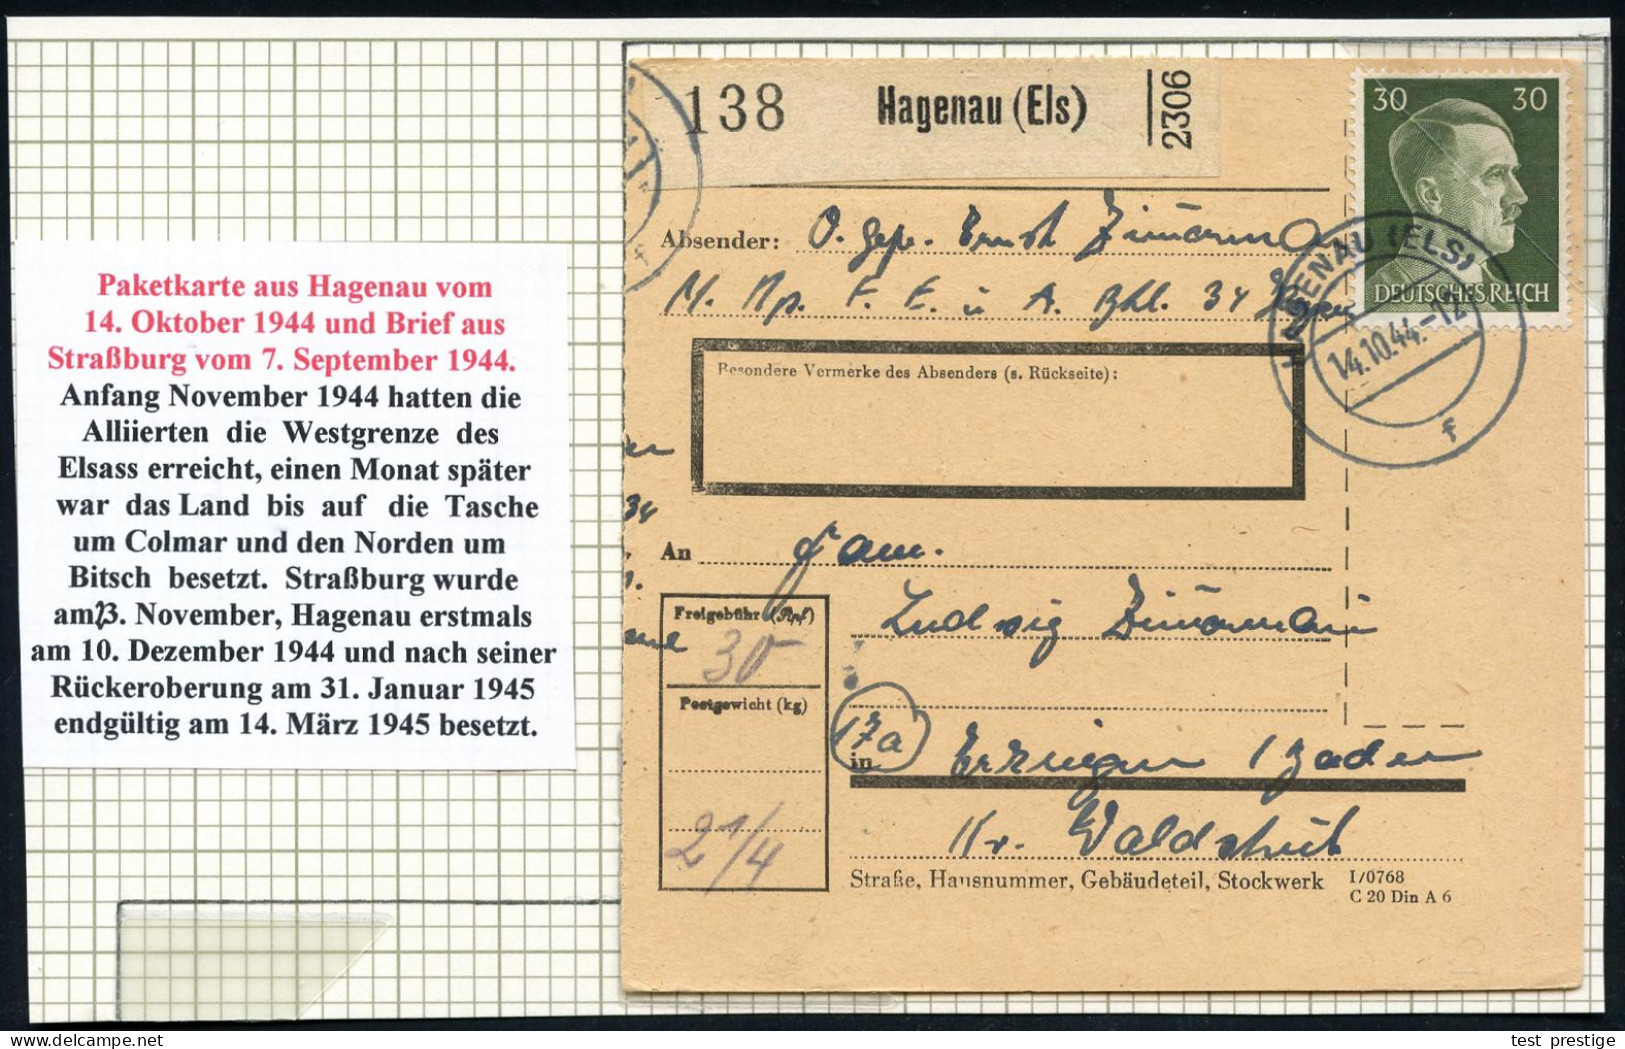 Paketkarte aus Hagenau vom
14. Oktober 1944 und Brief aus
Straßburg vom 7. September 1944.
Anfang November 1944 hatten die
Alliierten die Westgrenze des
Elsass erreicht, einen Monat später
war das Land bis auf die Tasche
um Colmar und den Norden um
Bitsch besetzt. Straßburg wurde
am 23. November, Hagenau erstmals
am 10. Dezember 1944 und nach seiner
Rückeroberung am 31. Januar 1945
endgültig am 14. März 1945 besetzt.
138 Hagenau (Els) 2306
30 30
DEUTSCHES REICH
HAGENAU (ELS)
14.10.44.-12
f
Absender: O. Gefr. Ernst
M. Np. F. E. u A. Bhl. 34
Besondere Vermerke des Absenders (s. Rückseite):
34
An Fam.
Ludwig
Freigebühr (Rpf)
30
Postgewicht (kg)
21/4
17a
in Erzingen / Baden
Kr. Waldshut
Straße, Hausnummer, Gebäudeteil, Stockwerk
I/0768
C 20 Din A 6
test prestige